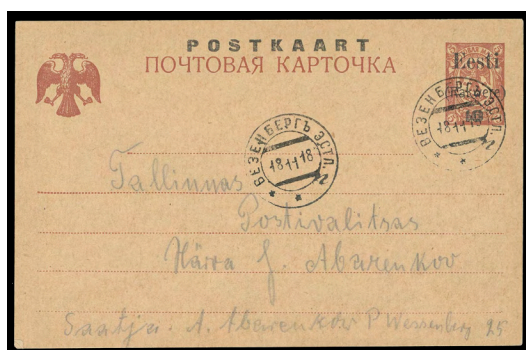 POSTKAART
ПОЧТОВАЯ КАРТОЧКА
Eesti
ВЕЗЕНБЕРГЪ ЭСТЛ.
18 11 18
ВЕЗЕНБЕРГЪ ЭСТЛ.
18 11 18
Tallinnas
Postivalitsas
Härra J. Abarenkov
Saatja. A. Abarenkov P Wesenberg 25